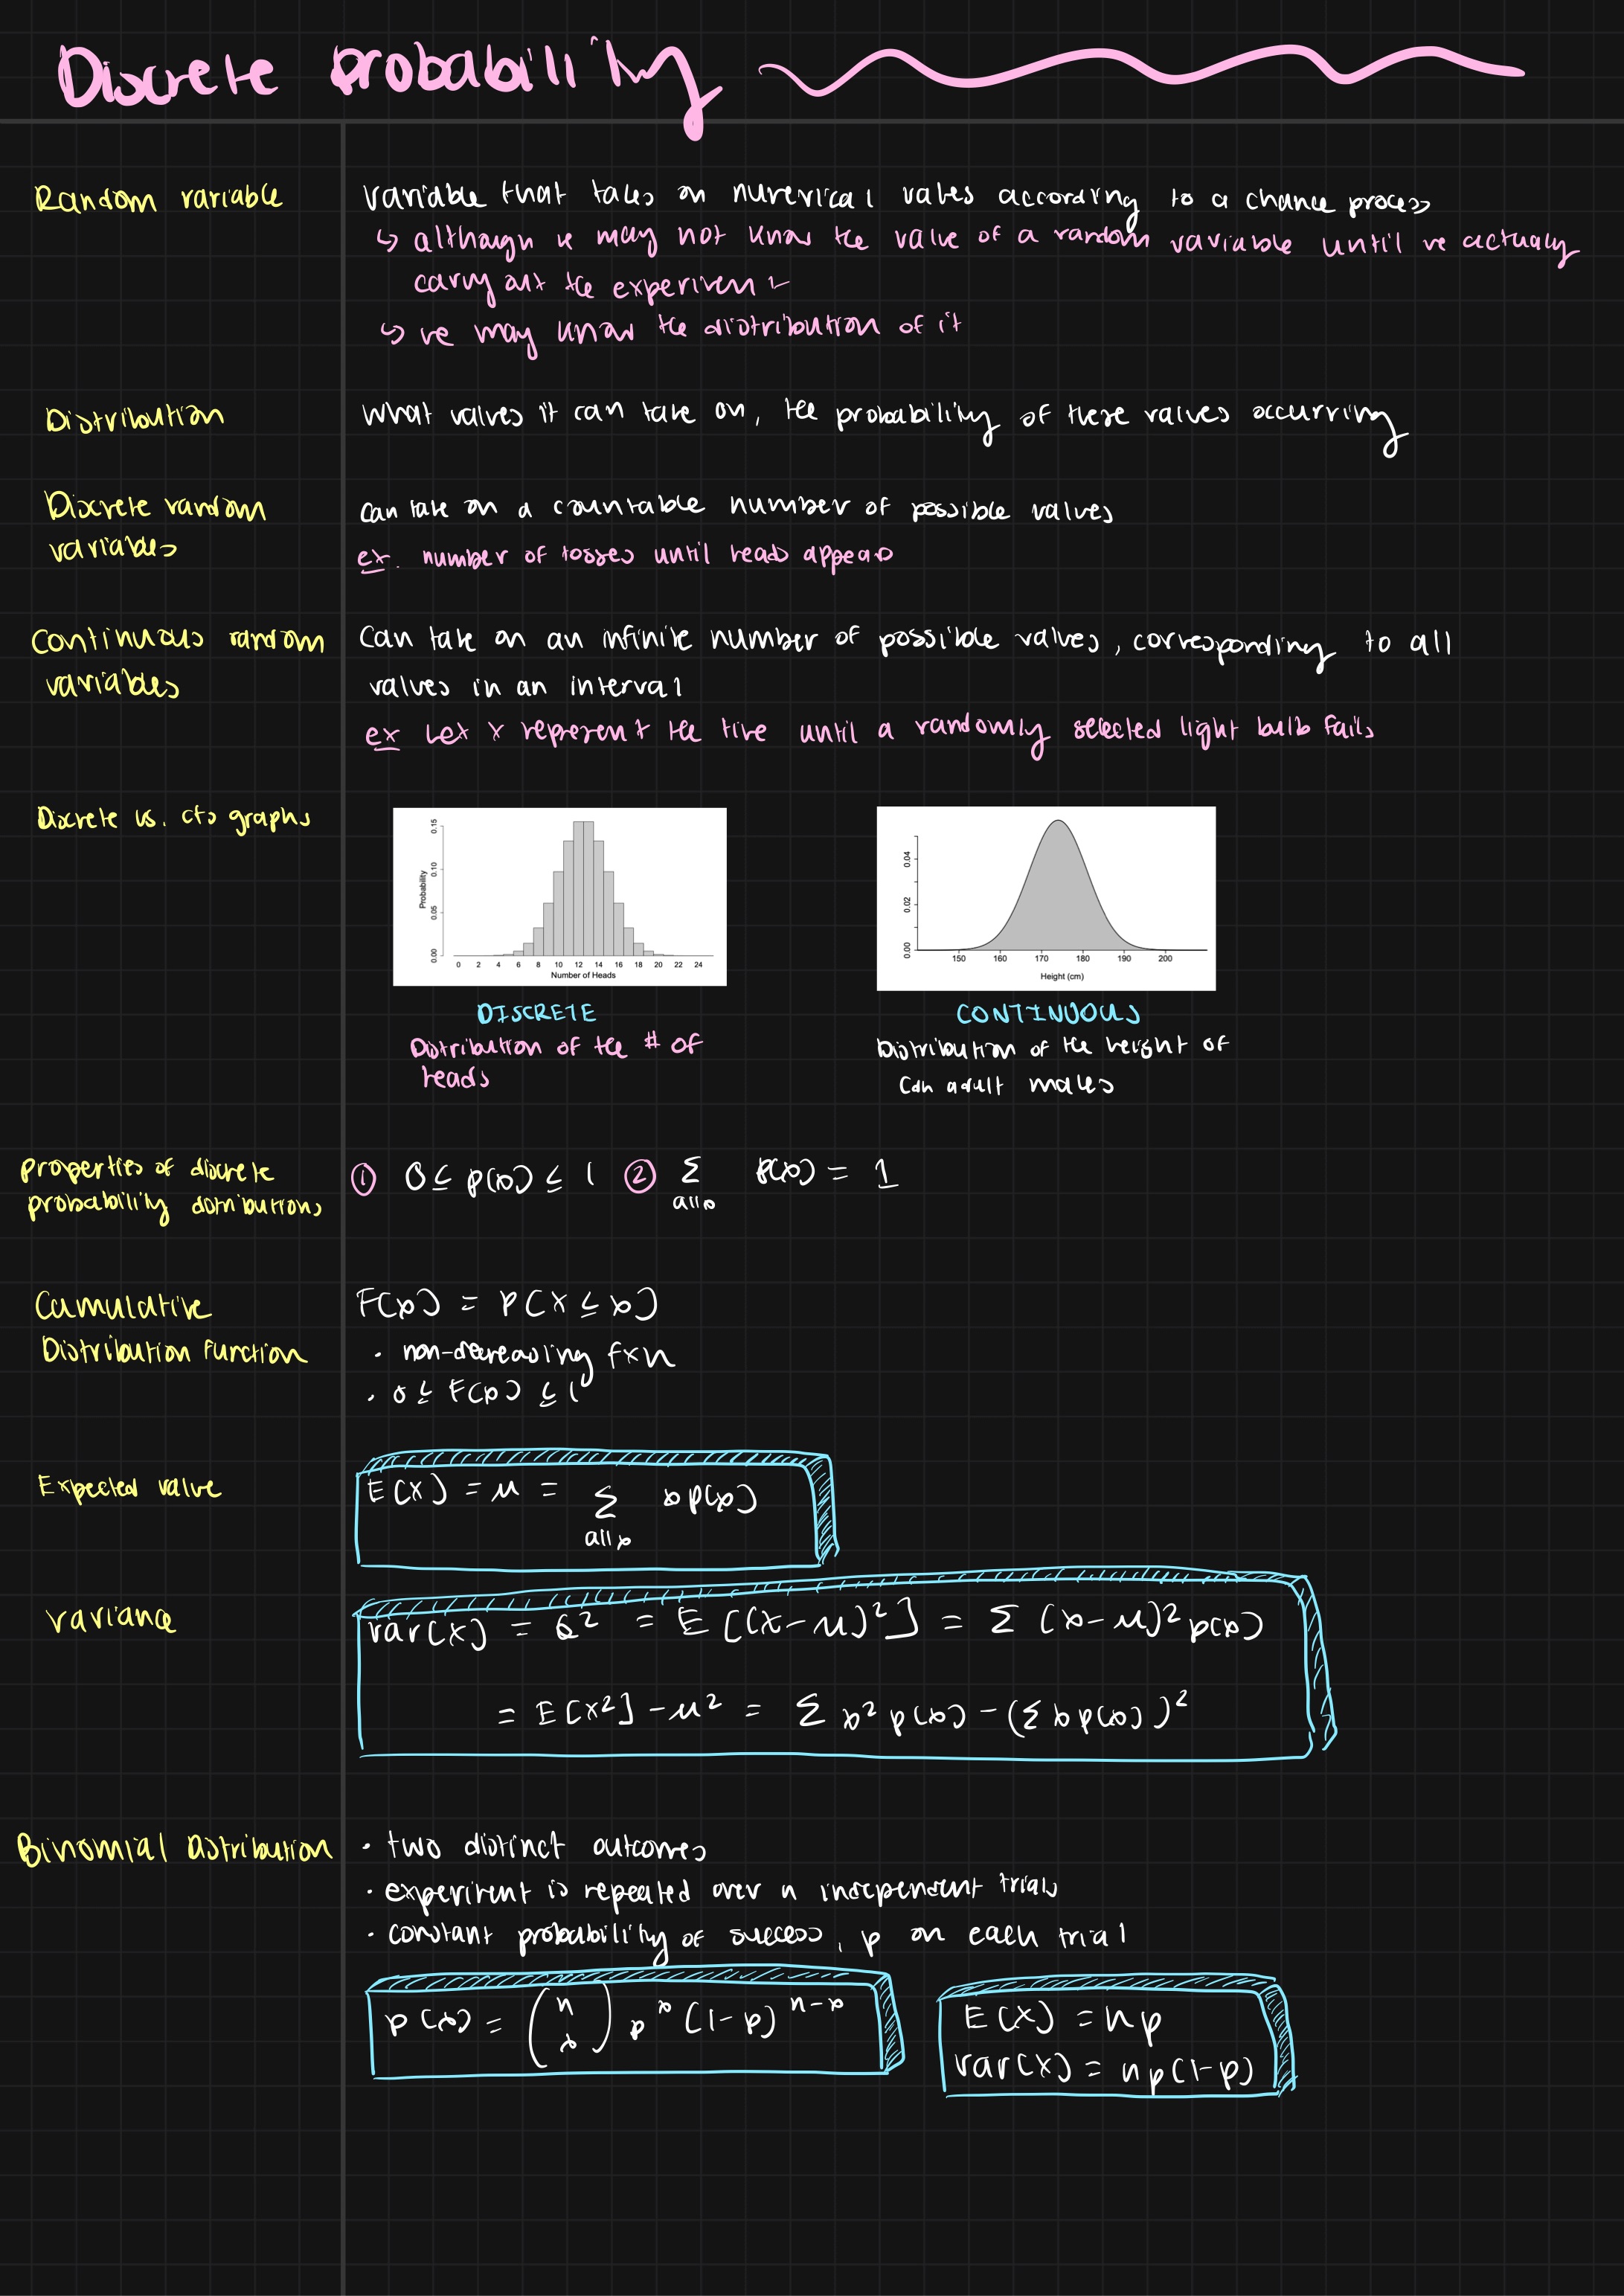 Discrete probability
Random variable
variable that takes on numerical values according to a chance process
↳ although we may not know the value of a random variable until we actualy
carry out the experiment
↳ we may know the distribution of it
Distribution
What values it can take on, the probability of these values occurring
Discrete random
variables
Can take on a countable number of possible values
ex. number of tosses until heads appears
Continuous random
variables
Can take on an infinite number of possible values, corresponding to all
values in an interval
ex Let X represent the time until a randomly selected light bulb fails
Discrete vs. cts graphs
Probability
0.00 0.05 0.10 0.15
0 2 4 6 8 10 12 14 16 18 20 22 24
Number of Heads
0.00 0.02 0.04
150 160 170 180 190 200
Height (cm)
DISCRETE
Distribution of the # of
heads
CONTINUOUS
Distribution of the height of
Cdn adult males
properties of discrete
probability distributions
① 0 ≤ p(x) ≤ 1 ② Σ p(x) = 1
all x
Cumulative
Distribution function
F(x) = P(X ≤ x)
· non-decreasing fxn
· 0 ≤ F(x) ≤ 1
Expected value
E(X) = μ = Σ x p(x)
all x
variance
var(X) = σ² = E[(X-μ)²] = Σ (x-μ)² p(x)
= E[X²] - μ² = Σ x² p(x) - (Σ x p(x))²
Binomial distribution
· two distinct outcomes
· experiment is repeated over n independent trials
· constant probability of success, p on each trial
p(x) = (n x) p^x (1-p)^n-x
E(X) = np
var(X) = np(1-p)